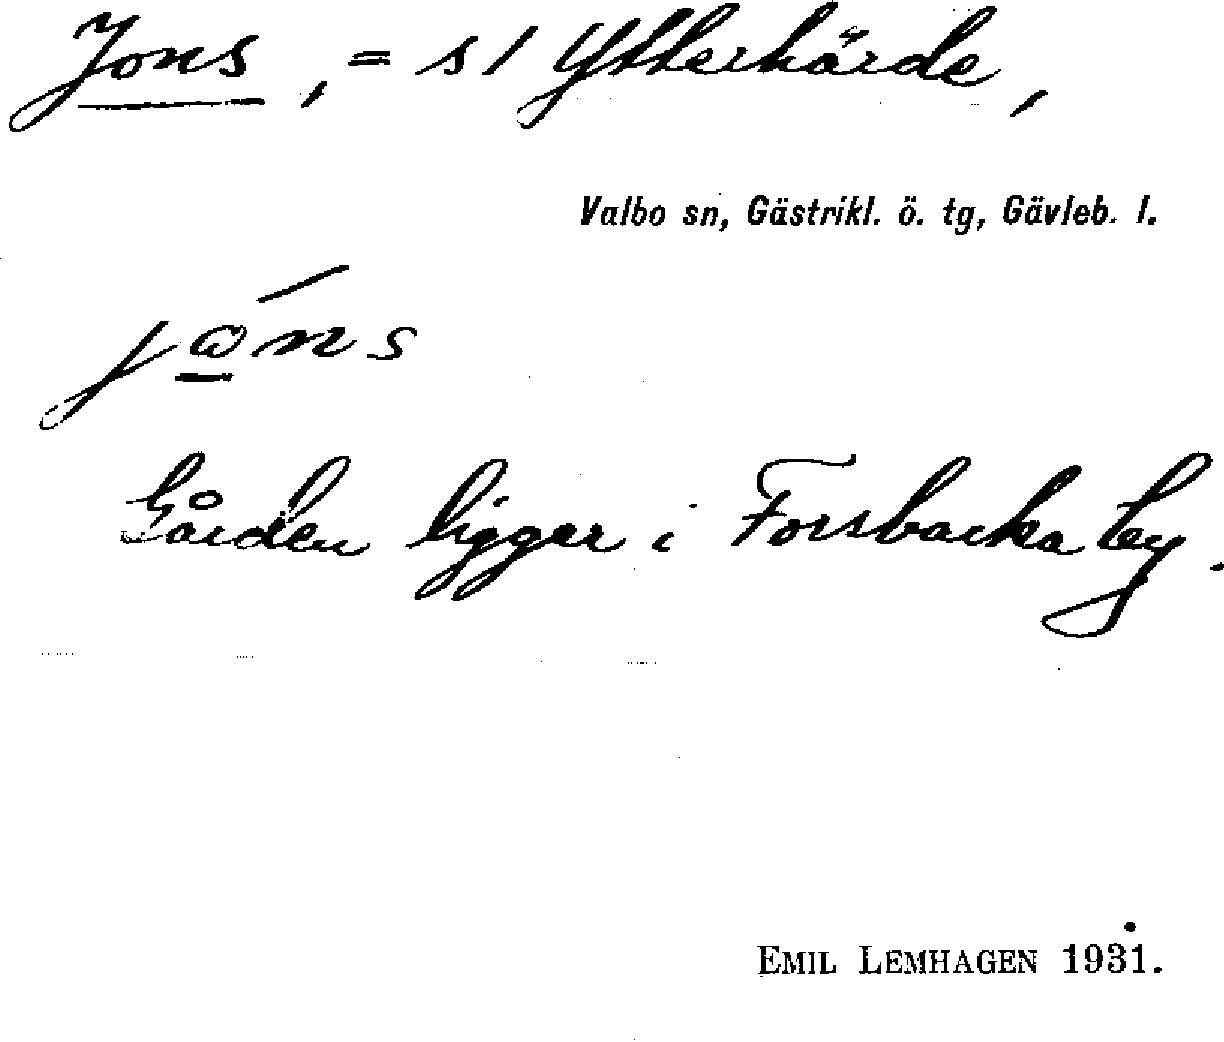 Jons, = s/ Ytterhärde,
Valbo sn, Gästrikl. ö. tg, Gävleb. l.
Gården ligger i Forsbacka by.
EMIL LEMHAGEN 1931.